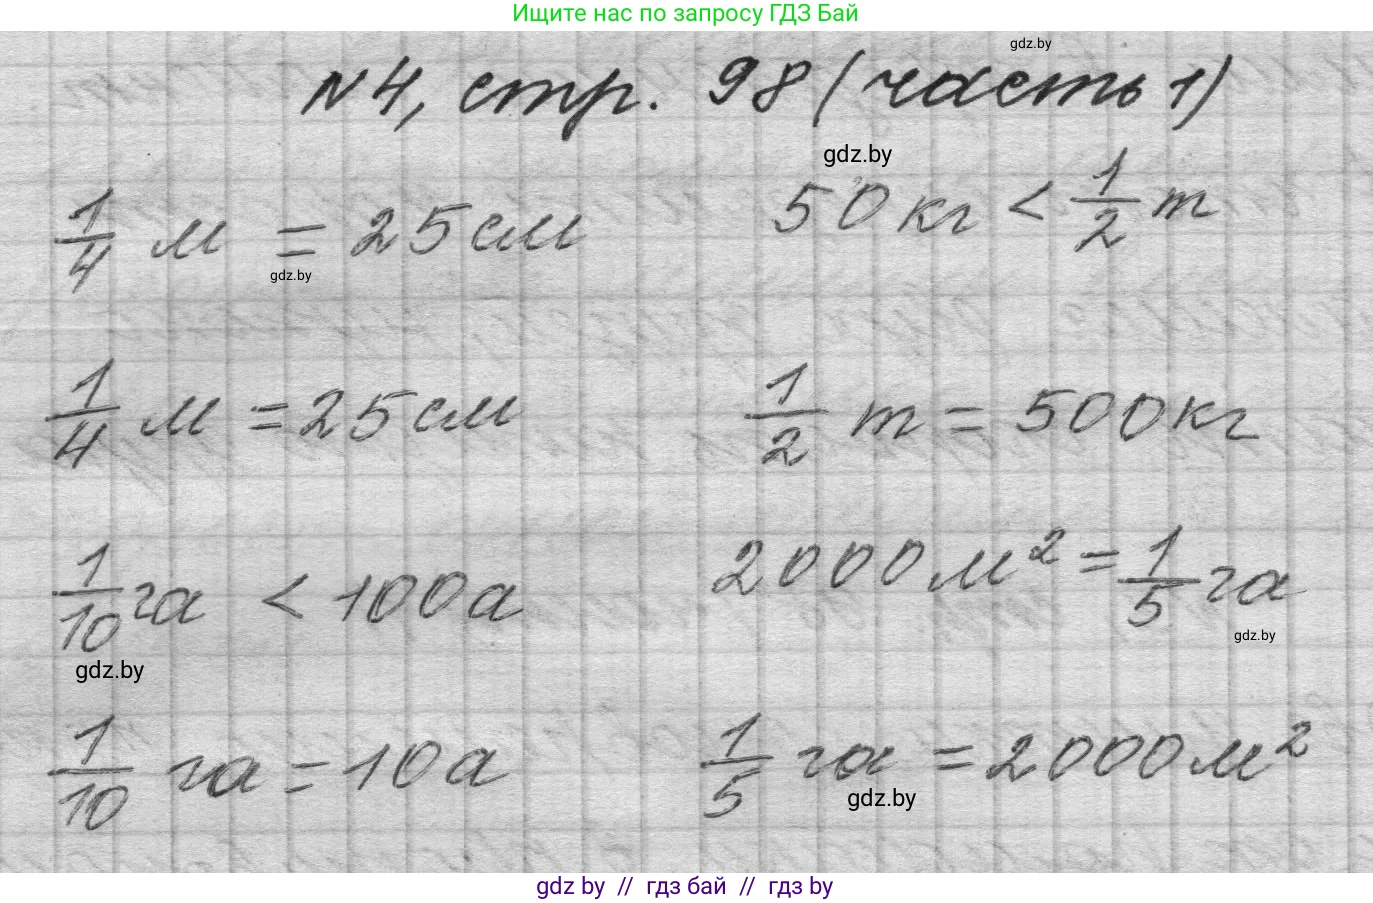 Ищите нас по запросу ГДЗ Бай
gdz.by
№4, стр. 98 (часть 1)
gdz.by
1/4 м = 25 см 50 кг < 1/2 т
gdz.by
1/4 м = 25 см 1/2 т = 500 кг
1/10 га < 100 а 2000 м² = 1/5 га
gdz.by
gdz.by
1/10 га = 10 а 1/5 га = 2000 м²
gdz.by
gdz by // гдз бай // гдз by